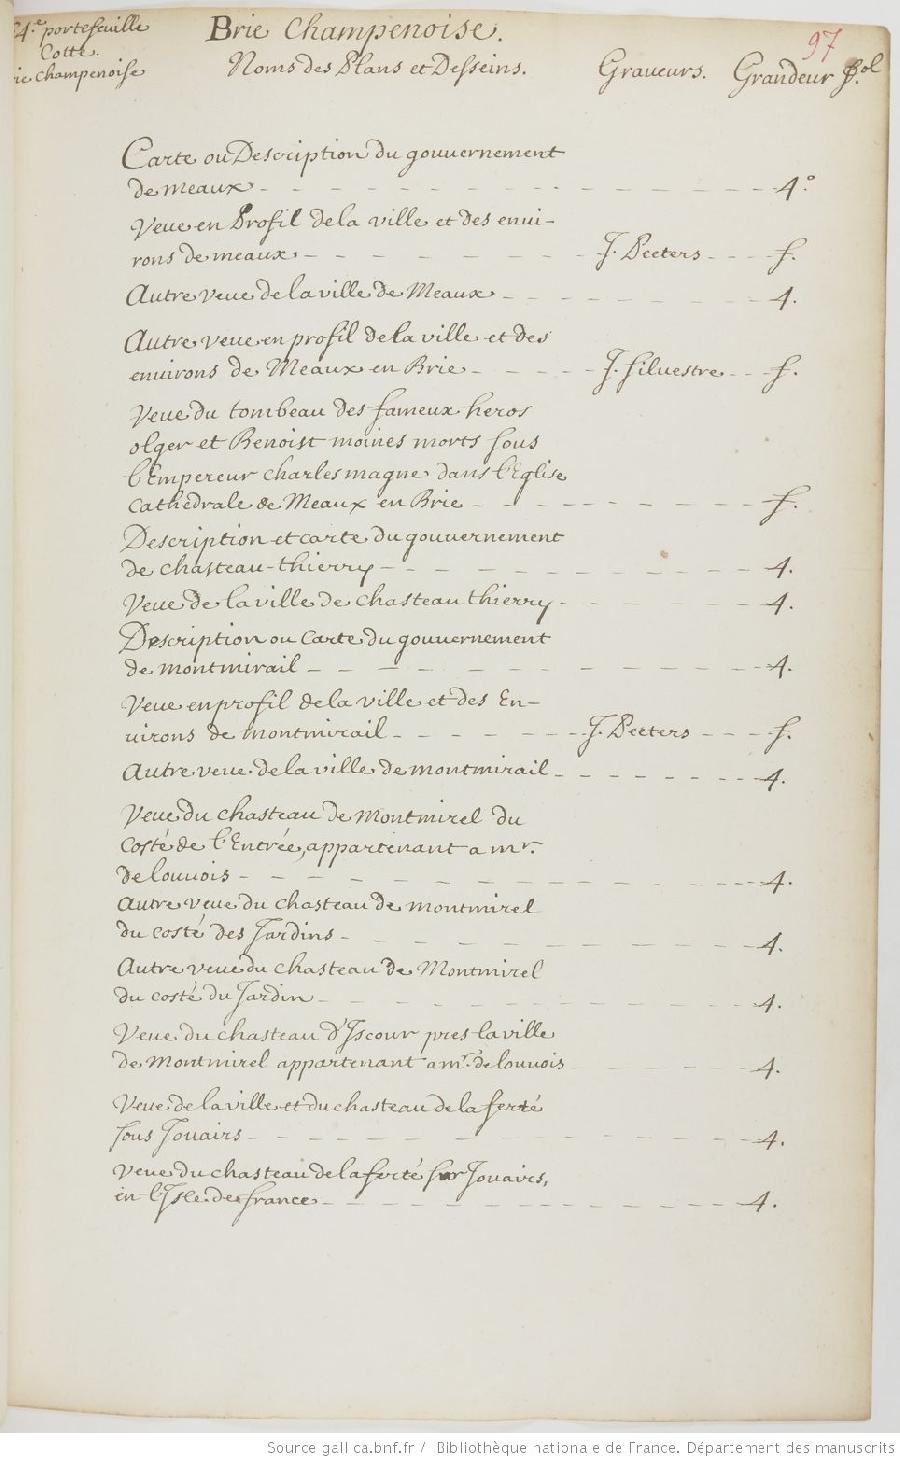 4.e portefeuille
Cotte
Brie Champenoise.
97
ie champenoise
Noms des Plans et Desseins. Graveurs. Grandeur
Carte ou Description du gouuernement
de meaux - - - 4.o
Veue en Profil de la ville et des enui-
rons de meaux - - - J. Peeters - - - f.
Autre veue de la ville de Meaux - - - 4.
Autre veue en profil de la ville et des
enuirons de Meaux en Brie - - - J. Siluestre - - - f.
Veue du tombeau des fameux heros
olger et Benoist moines morts sous
l'Empereur charles magne dans l'Eglise
cathedrale de Meaux en Brie - - - f.
Description et carte du gouuernement
de chasteau-thierry - - - 4.
Veue de la ville de chasteau thierry - - - 4.
Description ou carte du gouuernement
de montmirail - - - 4.
Veue en profil de la ville et des En-
uirons de montmirail - - - J. Peeters - - - f.
Autre veue de la ville de montmirail - - - 4.
Veue du chasteau de Montmirel du
costé de l'Entrée, appartenant a mr.
de louuois - - - 4.
Autre veue du chasteau de montmirel
du costé des Jardins - - - 4.
Autre veue du chasteau de Montmirel
du costé du Jardin - - - 4.
Veue du chasteau d'Iscour pres la ville
de Montmirel appartenant a mr. de louuois - - - 4.
Veue de la ville et du chasteau de la ferté
sous Jouairs - - - 4.
Veue du chasteau de la ferté sur Jouairs,
en l'Isle de france - - - 4.
Source gallica.bnf.fr / Bibliothèque nationale de France. Département des manuscrits